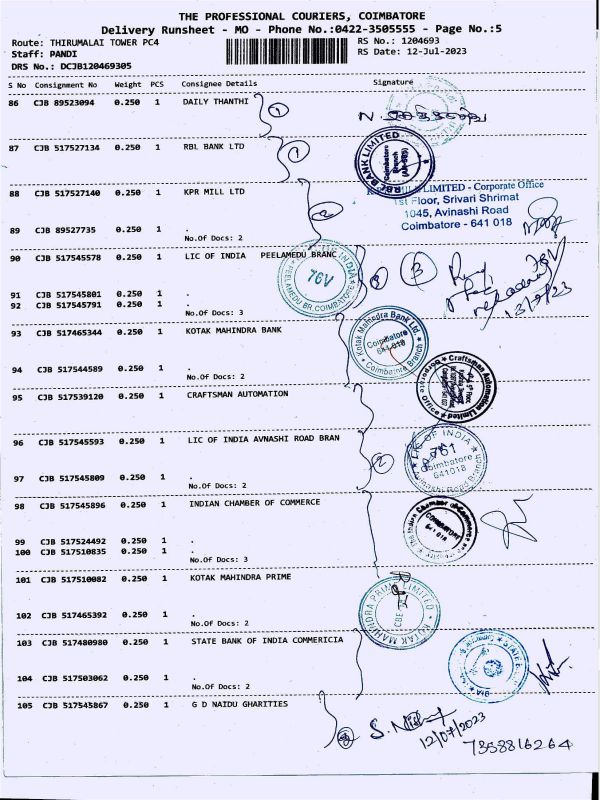 THE PROFESSIONAL COURIERS, COIMBATORE
Delivery Runsheet - MO - Phone No.:0422-3505555 - Page No.:5
Route: THIRUMALAI TOWER PC4 RS No.: 1204693
Staff: PANDI RS Date: 12-Jul-2023
DRS No.: DCJB120469305
S No Consignment No Weight PCS Consignee Details Signature
86 CJB 89523094 0.250 1 DAILY THANTHI
1
87 CJB 517527134 0.250 1 RBL BANK LTD
1
RBL BANK LIMITED
Coimbatore
Branch
88 CJB 517527140 0.250 1 KPR MILL LTD
LIMITED - Corporate Office
1st Floor, Srivari Shrimat
1045, Avinashi Road
Coimbatore - 641 018
2
89 CJB 89527735 0.250 1 .
No.Of Docs: 2
90 CJB 517545578 0.250 1 LIC OF INDIA PEELAMEDU BRANC
76V
PEELAMEDU BR. COIMBATORE
3
76V
91 CJB 517545801 0.250 1 .
92 CJB 517545791 0.250 1 .
No.Of Docs: 3
93 CJB 517465344 0.250 1 KOTAK MAHINDRA BANK
Kotak Mahindra Bank Ltd.
Coimbatore
641 018
Coimbatore Branch
94 CJB 517544589 0.250 1 .
No.Of Docs: 2
95 CJB 517539120 0.250 1 CRAFTSMAN AUTOMATION
Craftsman Automation Limited
Corporate Office
96 CJB 517545593 0.250 1 LIC OF INDIA AVNASHI ROAD BRAN
LIC OF INDIA
761
Coimbatore
641018
2
97 CJB 517545809 0.250 1 .
No.Of Docs: 2
98 CJB 517545896 0.250 1 INDIAN CHAMBER OF COMMERCE
The Indian Chamber of Commerce
99 CJB 517524492 0.250 1 .
100 CJB 517510835 0.250 1 .
No.Of Docs: 3
101 CJB 517510082 0.250 1 KOTAK MAHINDRA PRIME
KOTAK MAHINDRA PRIME LIMITED
CBE
102 CJB 517465392 0.250 1 .
No.Of Docs: 2
103 CJB 517480980 0.250 1 STATE BANK OF INDIA COMMERICIA
104 CJB 517503062 0.250 1 .
No.Of Docs: 2
105 CJB 517545867 0.250 1 G D NAIDU GHARITIES
12/07/2023
7358816264